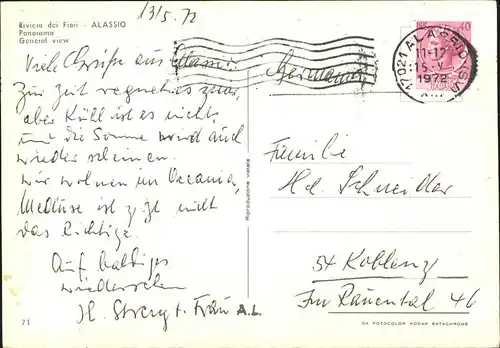 Riviera dei Fiori - ALASSIO
Panorama
General view
13/5.72
Viele Grüße aus Alassio.
Zur Zeit regnet es zwar,
aber Kühl ist es nicht,
und die Sonne wird auch
wieder scheinen.
Wir wohnen im Oceania,
Meduse ist z.Zt nicht
das Richtige.
Auf baldiges
wiedersehen
H. u. Frau A.L.
71
Germania
40
17021 ALASSIO (SV)
11-12
15.V
1972
Riproduzione vietata
Familie
Hd. Schneidler
54 Koblenz
Im Rauental 46
DA FOTOCOLOR KODAK EKTACHROME